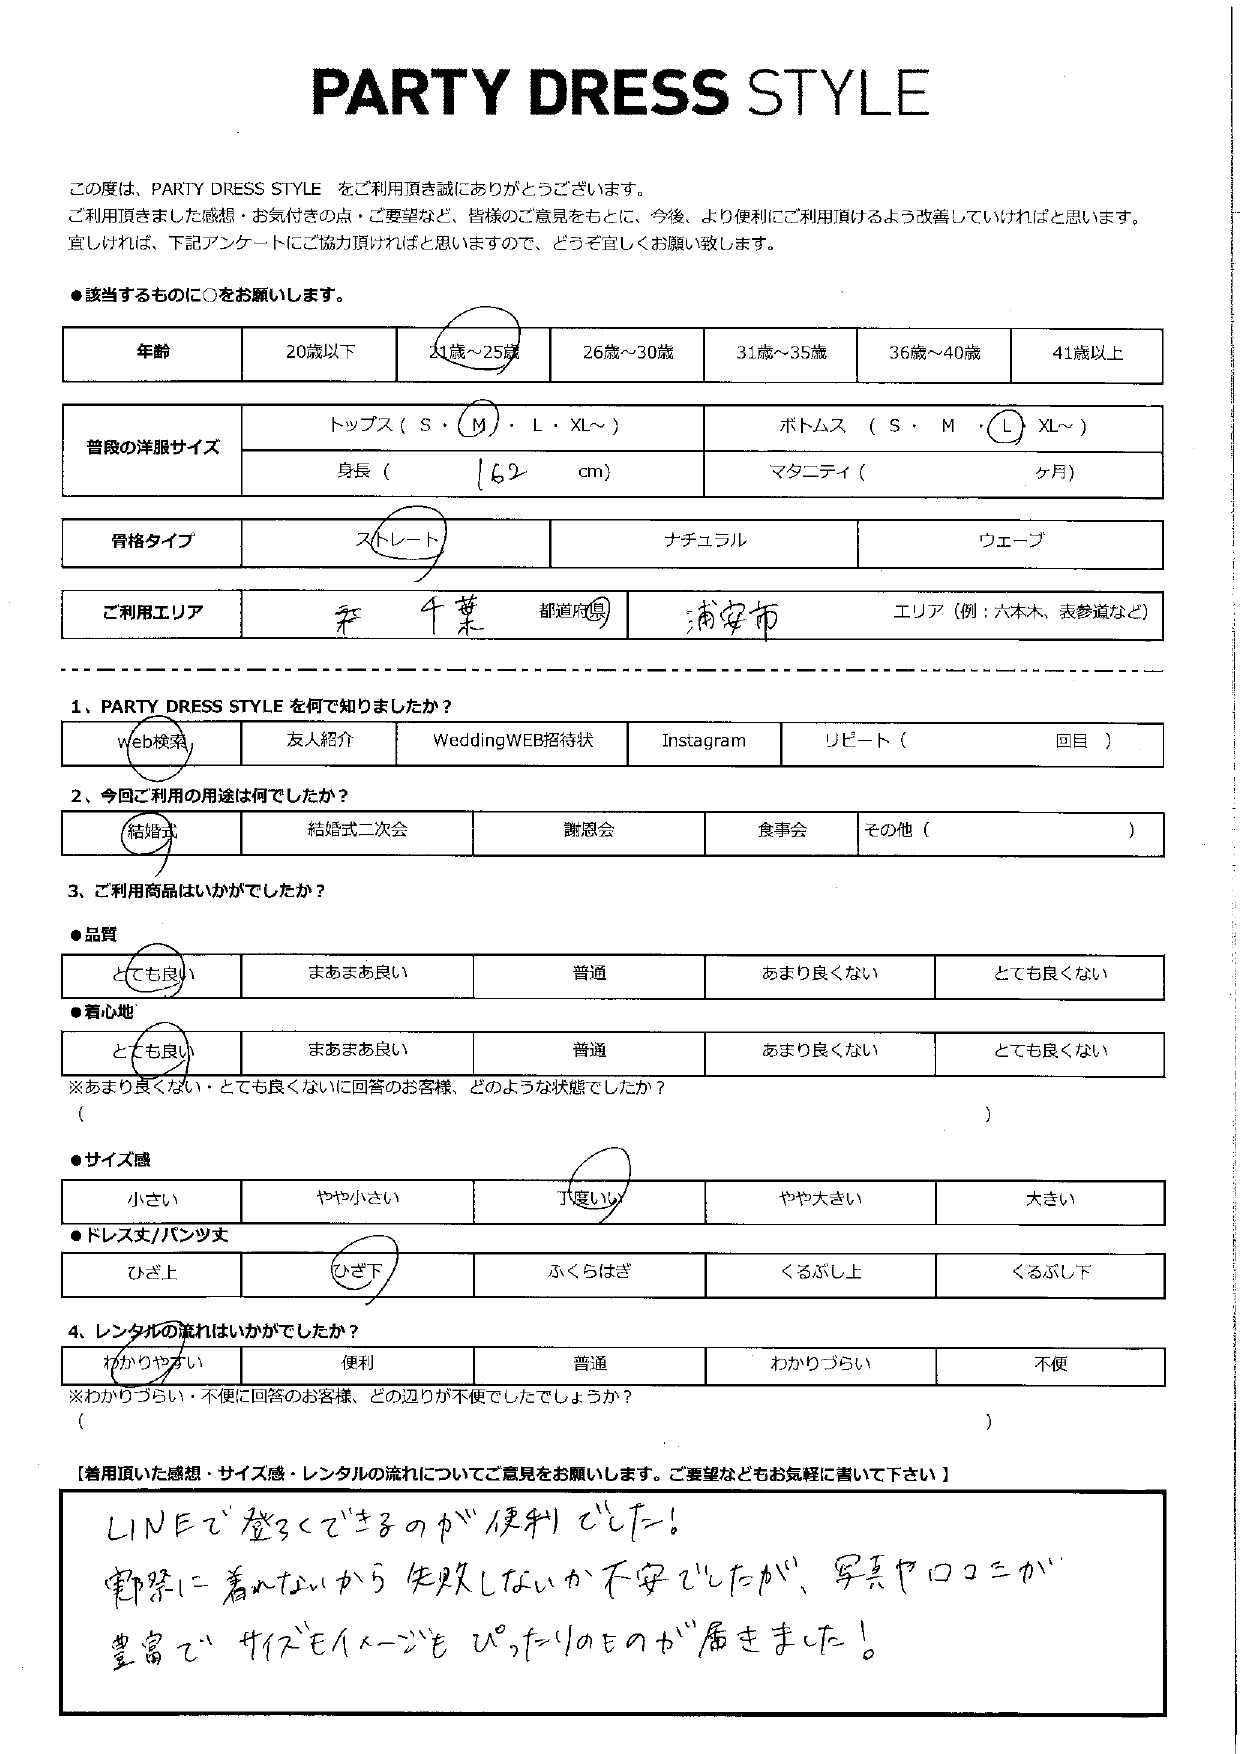 PARTY DRESS STYLE
この度は、PARTY DRESS STYLE をご利用頂き誠にありがとうございます。
ご利用頂きました感想・お気付きの点・ご要望など、皆様のご意見をもとに、今後、より便利にご利用頂けるよう改善していければと思います。
宜しければ、下記アンケートにご協力頂ければと思いますので、どうぞ宜しくお願い致します。
●該当するものに○をお願いします。
年齢 20歳以下 21歳～25歳 26歳～30歳 31歳～35歳 36歳～40歳 41歳以上
普段の洋服サイズ トップス ( S ・ M ・ L ・ XL～ ) ボトムス ( S ・ M ・ L ・ XL～ )
身長 ( 162 cm) マタニティ ( ヶ月)
骨格タイプ ストレート ナチュラル ウェーブ
ご利用エリア 千葉 都道府県 浦安市 エリア（例：六本木、表参道など）
1、PARTY DRESS STYLE を何で知りましたか？
web検索 友人紹介 WeddingWEB招待状 Instagram リピート ( 回目 )
2、今回ご利用の用途は何でしたか？
結婚式 結婚式二次会 謝恩会 食事会 その他 ( )
3、ご利用商品はいかがでしたか？
●品質
とても良い まあまあ良い 普通 あまり良くない とても良くない
●着心地
とても良い まあまあ良い 普通 あまり良くない とても良くない
※あまり良くない・とても良くないに回答のお客様、どのような状態でしたか？
( )
●サイズ感
小さい やや小さい 丁度いい やや大きい 大きい
●ドレス丈/パンツ丈
ひざ上 ひざ下 ふくらはぎ くるぶし上 くるぶし下
4、レンタルの流れはいかがでしたか？
わかりやすい 便利 普通 わかりづらい 不便
※わかりづらい・不便に回答のお客様、どの辺りが不便でしたでしょうか？
( )
【着用頂いた感想・サイズ感・レンタルの流れについてご意見をお願いします。ご要望などもお気軽に書いて下さい 】
LINEで登ろくできるのが便利でした!
実際に着れないから失敗しないか不安でしたが、写真や口コミが
豊富でサイズもイメージもぴったりのものが届きました!